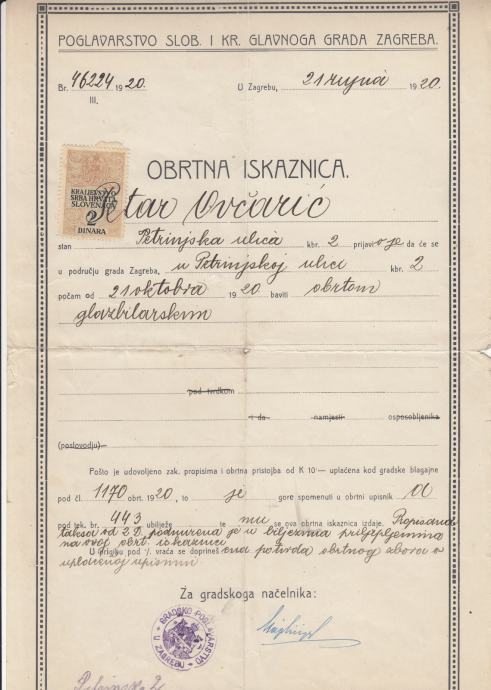 POGLAVARSTVO SLOB. I KR. GLAVNOGA GRADA ZAGREBA.
Br. 46224 1920.
U Zagrebu, 21 rujna 1920.
III.
OBRTNA ISKAZNICA.
KRALJEVSTVO
SRBA HRVATA
SLOVENACA
2
DINARA
Petar Ovčarić
stan Petrinjska ulica kbr. 2 prijavio je da će se
u području grada Zagreba, u Petrinjskoj ulici kbr. 2
počam od 21 oktobra 1920 baviti obrtom
glazbilarskim
pod tvrdkom
i da namjesti osposobljenika
(poslovodju)
Pošto je udovoljeno zak. propisima i obrtna pristojba od K 10·— uplaćena kod gradske blagajne
pod čl. 1170 obrt. 1920, to je gore spomenuti u obrtni upisnik A
pod tek. br. 443 ubilježe te mu se ova obrtna iskaznica izdaje. Propisana
taksa od 2 D. podmirena je u biljezima prilijepljenima
na ovoj obrt. iskaznici
U prigibu pod ·/. vraća se doprinešena potvrda obrtnog zbora o
uplaćenoj upisnini
Za gradskoga načelnika:
GRADSKO POGLAVARSTVO
U ZAGREBU